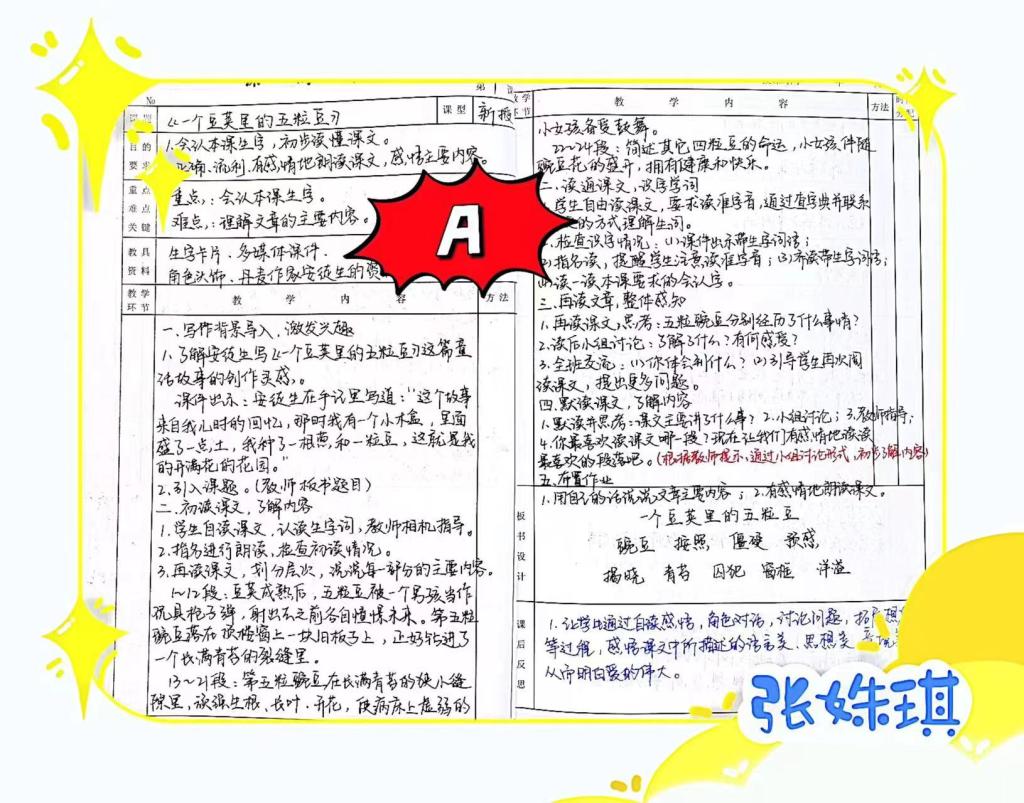 No
课题
《一个豆荚里的五粒豆》
课型
新授
目的
要求
1.会认本课生字,初步读懂课文。
流利、有感情地朗读课文,感悟主要内容。
重点
难点
关键
重点:会认本课生字。
难点:理解文章的主要内容。
教具
资料
生字卡片、多媒体课件、
角色头饰、丹麦作家安徒生的资
教学
环节
教 学 内 容
方法
一、写作背景导入,激发兴趣
1、了解安徒生写《一个豆荚里的五粒豆》这篇童
话故事的创作灵感。
课件出示:安徒生在手记里写道:“这个故事
来自我儿时的回忆,那时我有一个小木盒,里面
盛了一点土,我种了一根葱,和一粒豆,这就是我
的开满花的花园。”
2.引入课题。(教师板书题目)
二、初读课文,了解内容
1.学生自读课文,认读生字词,教师相机指导。
2.指名进行朗读,检查初读情况。
3.再读课文,划分层次,说说每一部分的主要内容。
1~12段:豆荚成熟后,五粒豆被一个男孩当作
玩具枪子弹,射出去之前各自憧憬未来。第五粒
豌豆落在顶楼窗上一块旧板子上,正好钻进了
一个长满青苔的裂缝里。
13~21段:第五粒豌豆在长满青苔的狭小缝
隙里,该编生根、长叶、开花,使病床上虚弱的
教 学 内 容
方法
小女孩备受鼓舞。
22~24段:简述其它四粒豆的命运,小女孩伴随
豌豆花的盛开,拥有健康和快乐。
二、读通课文,识字学词
学生自由读课文,要求读准字音,通过查字典并联系
的方式理解生词。
检查识字情况:(1)课件出示带生字词语;
指名读,提醒学生注意读准字音;(3)齐读带生字词语;
读一读本课要求的会认字。
三、再读文章,整体感知
1.再读课文,思考:五粒豌豆分别经历了什么事情?
2.读后小组讨论:了解了什么?有何感受?
3.全班交流:(1)你体会到什么?(2)引导学生再次阅
读课文,提出更多问题。
四、默读课文,了解内容
1.默读并思考:课文主要讲了什么事?2.小组讨论;3.教师指导;
4.你最喜欢读课文哪一段?现在让我们有感情地读读
最喜欢的段落吧。(根据教师提示,通过小组讨论形式,初步了解内容)
五、布置作业
1.用自己的话说说文章主要内容;2.有感情地朗读课文。
板
书
设
计
一个豆荚里的五粒豆
豌豆 按照 僵硬 预感
揭晓 青苔 囚犯 窗框 洋溢
课
后
反
思
1.让学生通过自读感悟,角色对话,讨论问题,
等过程,感悟课文中所描述的语言美、思想美
从中明白爱的伟大。
A
张姝琪